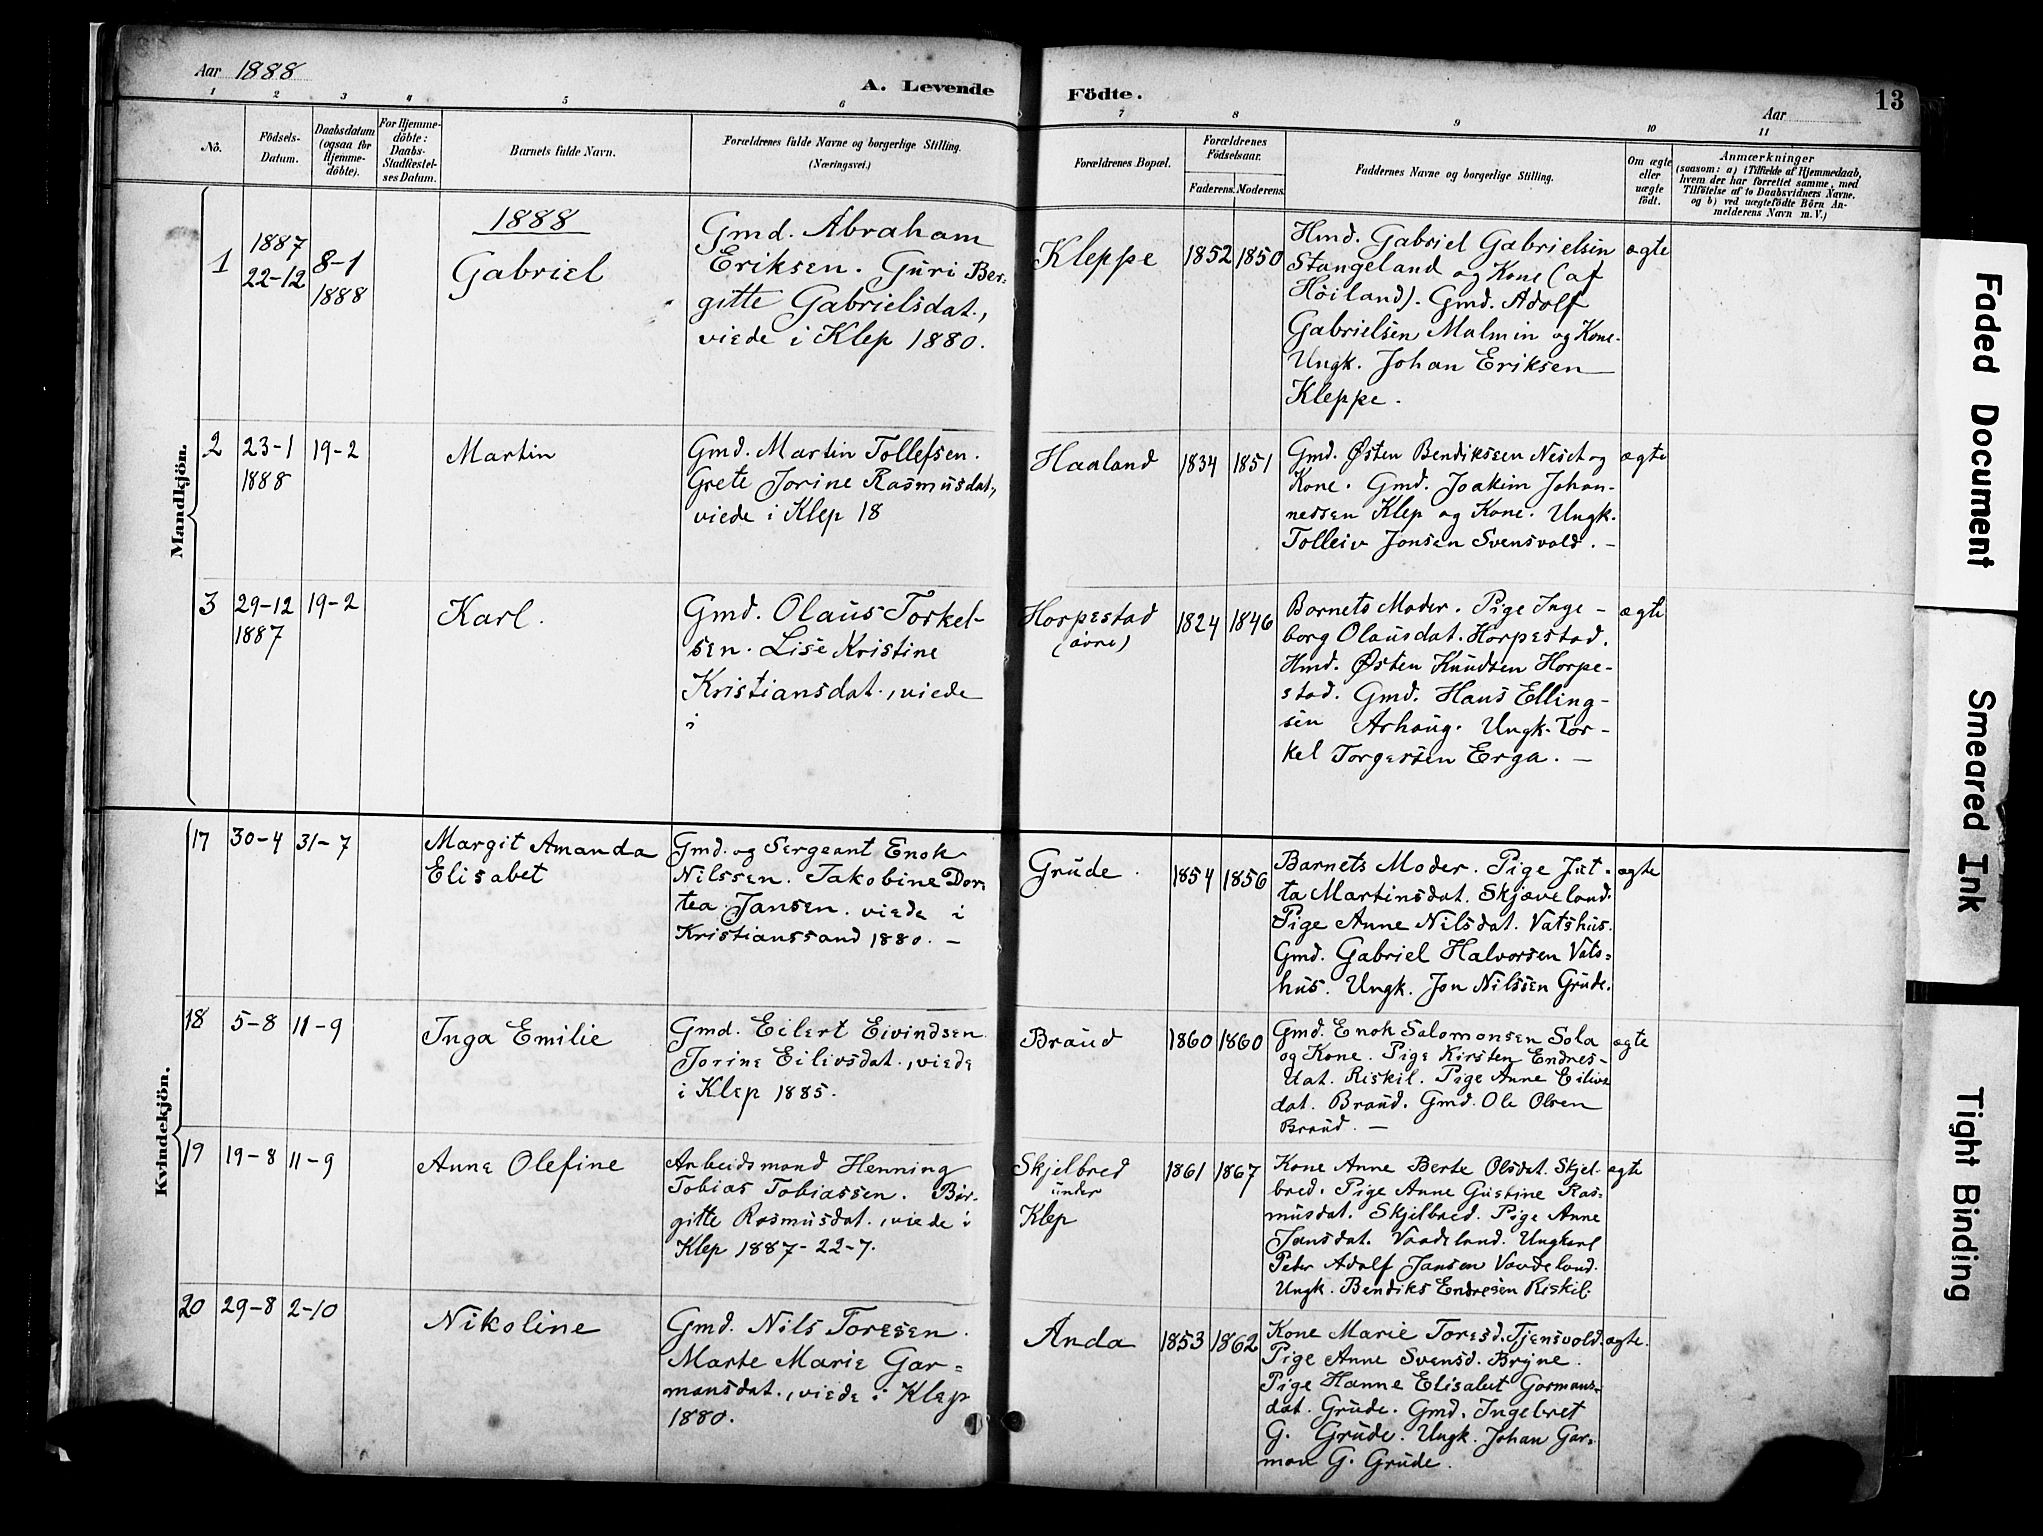 Aar 1888
A. Levende Födte.
Aar
13
1 2 3 4 5 6 7 8 9 10 11
No.
Födsels-
Datum.
Daabsdatum
(ogsaa for
Hjemme-
döbte).
For Hjemme-
döbte:
Daabs-
Stadfæstel-
ses Datum.
Barnets fulde Navn.
Forældrenes fulde Navne og borgerlige Stilling.
(Næringsvei.)
Forældrenes Bopæl.
Forældrenes
Födselsaar.
Faderens. Moderens.
Faddernes Navne og borgerlige Stilling.
Om ægte
eller
uægte
födt.
Anmærkninger
(saasom: a) i Tilfælde af Hjemmedaab,
hvem der har forrettet samme, med
Tilföielse af to Daabsvidners Navne.
og b) ved uægtefödte Börn An-
melderens Navn m. V.)
Mandkjön.
1888
1
1887
22-12
8-1
1888
Gabriel
Gmd. Abraham
Eriksen. Guri Ber-
gitte Gabrielsdat.,
viede i Klep 1880.
Kleppe
1852
1850
Hmd. Gabriel Gabrielsen
Stangeland og Kone (af
Höiland). Gmd. Adolf
Gabrielsen Malmin og Kone.
Ungk. Johan Eriksen
Kleppe.
ægte
2
23-1
1888
19-2
Martin
Gmd. Martin Tollefsen.
Grete Jorine Rasmusdat.,
viede i Klep 18
Haaland
1834
1851
Gmd. Østen Bendiksen Neset og
Kone. Gmd. Joakim Johan-
nessen Klep og Kone. Ungk.
Tolleiv Jonsen Svensvold. -
ægte
3
29-12
1887
19-2
Karl.
Gmd. Olaus Torkel-
sen. Lise Kristine
Kristiansdat., viede
i
Horpestad
(övre)
1824
1846
Barnets Moder. Pige Inge-
borg Olausdat. Horpestad.
Hmd. Østen Knudsen Horpe-
stad. Gmd. Hans Elling-
sen Arhaug. Ungk. Tor-
kel Torgersen Erga. -
ægte
Kvindekjön.
17
30-4
31-7
Margit Amanda
Elisabet
Gmd. og Sergeant Enok
Nilssen. Jakobine Dor-
tea Jansen. viede i
Kristianssand 1880. -
Grude.
1854
1856
Barnets Moder. Pige Jut-
ta Martinsdat. Skjæveland.
Pige Anne Nilsdat. Vatshus.
Gmd. Gabriel Halvorsen Vats=
hus. Ungk. Jon Nilssen Grude.
ægte
18
5-8
11-9
Inga Emilie
Gmd. Eilert Eivindsen.
Jorine Eilivsdat., viede
i Klep 1885.
Braud
1860
1860
Gmd. Enok Salomonsen Sola
og Kone. Pige Kirsten Endres-
dat. Riskil. Pige Anne Eilivs
dat. Braud. Gmd. Ole Olsen
Braud. -
ægte
19
19-8
11-9
Anne Olefine
Arbeidsmand Henning
Tobias Tobiassen. Bir-
gitte Rasmusdat., viede i
Klep 1887-22-7.
Skjelbred
under
Klep
1861
1867
Kone Anne Berte Olsdat. Skjel-
bred. Pige Anne Gustine Ras-
musdat. Skjelbred. Pige Anne
Jansdat. Vaadeland. Ungkarl
Peter Adolf Jansen Vaadeland.
Ungk. Bendiks Endresen Riskil.
ægte
20
29-8
2-10
Nikoline
Gmd. Nils Toresen.
Marte Marie Gar=
mansdat., viede i Klep
1880.
Anda
1853
1862
Kone Marie Toresd. Tjensvold.
Pige Anne Svensd. Bryne.
Pige Hanne Elisabet Gormans-
dat. Grude. Gmd. Ingebret
G. Grude. Ungk. Johan Gar-
man G. Grude.
ægte.
Faded Document
Smeared Ink
Tight Binding